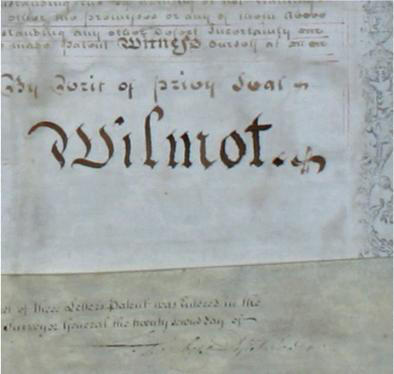 other the premisses or any of them above
standing any other Defect Incertainty or
made patent Witness Ourself at our
By Writ of privy Seal
Wilmot.
of these Letters Patent was Entered in the
Surveyor General the twenty second day of